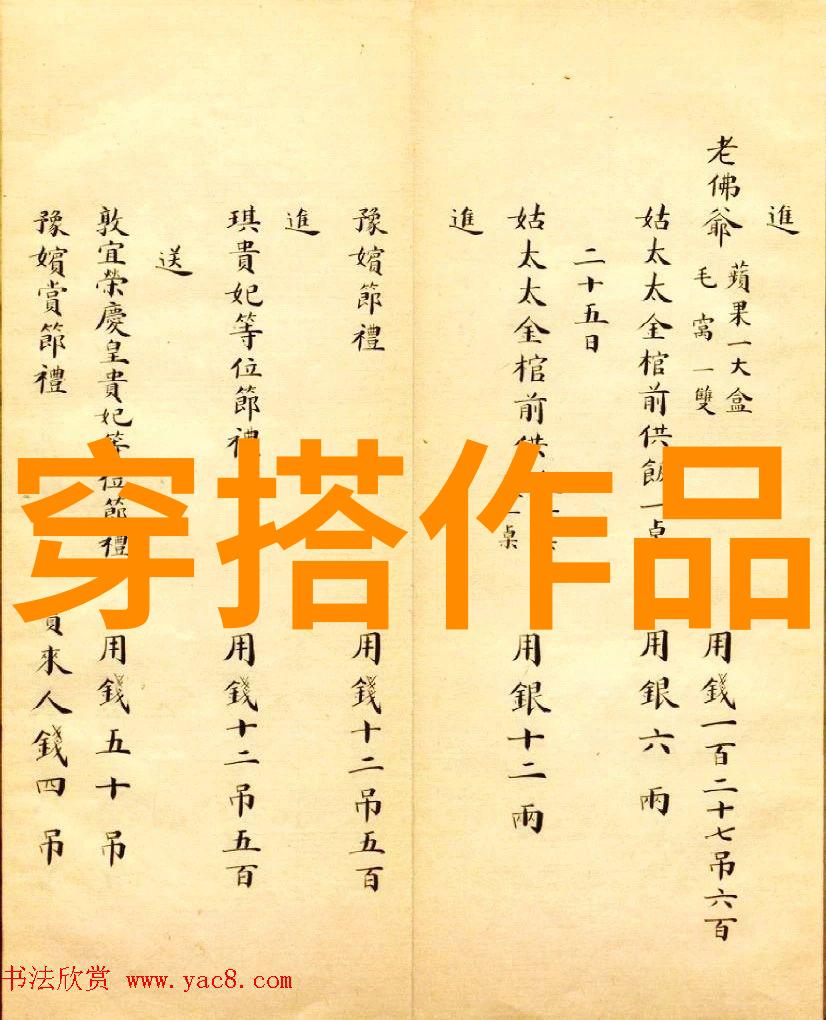 進
老佛爺 蘋果一大盒 毛窩一雙 用錢一百二十七吊六百
姑太太金棺前供飯一桌 用銀六兩
二十五日
姑太太金棺前供 一桌 用銀十二兩
進
豫嬪節禮 用錢十二吊五百
進
琪貴妃等位節禮 用錢十二吊五百
送
敦宜榮慶皇貴妃等位節禮 用錢五十吊
豫嬪賞節禮 來人錢四吊
穿搭作品
书法欣赏 www.yac8.com